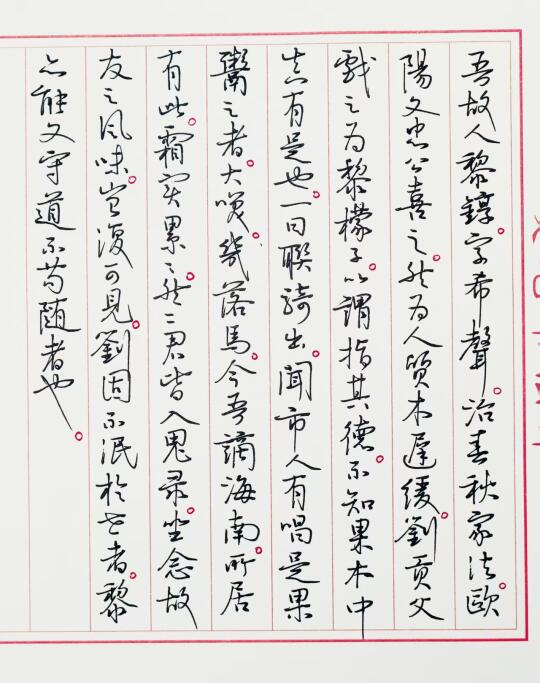 吾故人黎錞。字希聲。治春秋家法。歐
陽文忠公喜之。然為人質木遲緩。劉貢父
戲之為黎檬子。以謂指其德。不知果木中
真有是也。一日聯騎出。聞市人有唱是果
鬻之者。大噱。幾落馬。今吾謫海南。所居
有此。霜實累々。然二君皆入鬼录。坐念故
友之風味。豈復可見。劉固不泯於世者。黎
亦能文守道不苟隨者也。